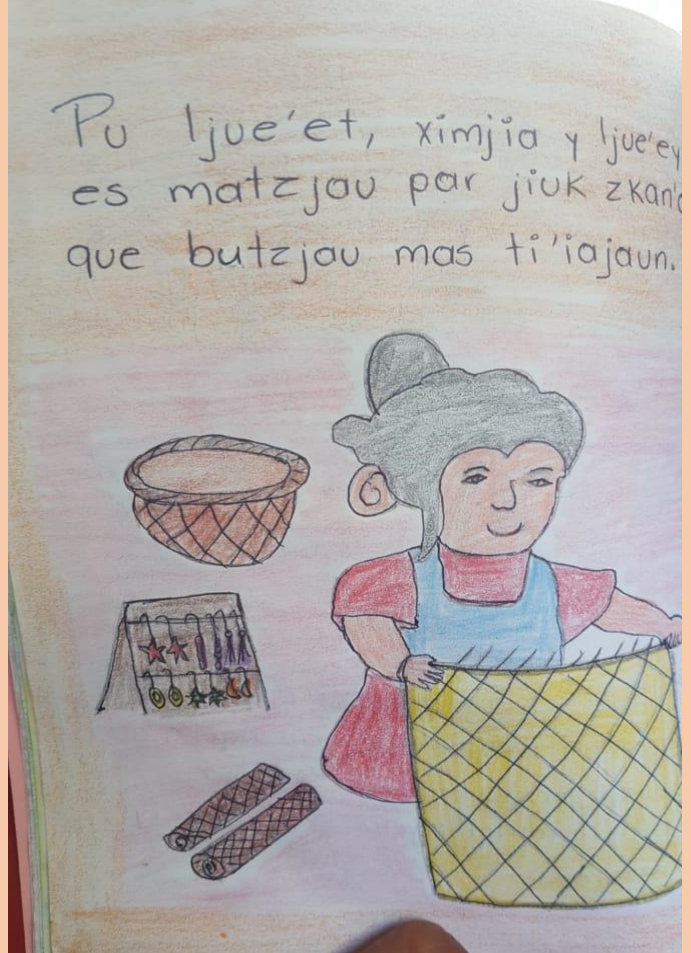 Pu ljue'et, ximjia y ljue'ey
es matzjau par jiuk zkan'
que butzjau mas ti'iajaun.